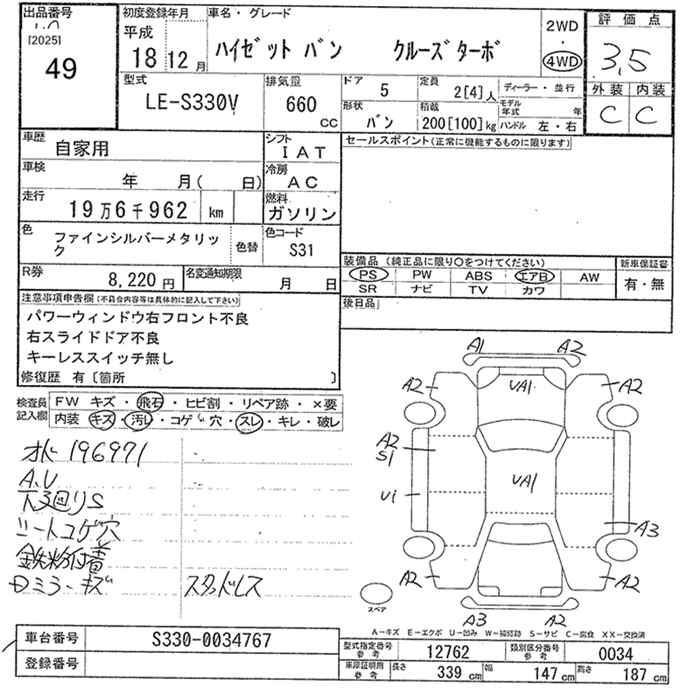 出品番号
[2025]
49
初度登録年月
平成
18 年 12 月
車名・グレード
ハイゼット バン クルーズターボ
2WD
・
4WD
評価点
3.5
外装 内装
C C
型式
LE-S330V
排気量
660
CC
ドア
5
定員
2[4]人
ディーラー・並行
形状
バン
積載
200[100]kg
モデル年式 年
ハンドル 左・右
車歴
自家用
シフト
IAT
車検
年 月( 日)
冷房
AC
走行
19万6千962 km
燃料
ガソリン
色
ファインシルバーメタリック
色替
色コード
S31
R券
8,220円
名変通知期限
月 日
セールスポイント(正常に機能するものに限ります)
装備品 (純正品に限り○をつけてください)
PS PW ABS エアB AW
SR ナビ TV カワ
新車保証書
有・無
後日品
注意事項申告欄(不具合内容等は具体的に記入して下さい)
パワーウィンドウ右フロント不良
右スライドドア不良
キーレススイッチ無し
修復歴 有〔箇所 〕
検査員記入欄
FW キズ・飛石・ヒビ割・リペア跡・×要
内装 キズ・汚レ・コゲ・穴・スレ・キレ・破レ
オド 196971
A.U
下廻りS
シートコゲ穴
鉄粉付着
Dミラーキズ
スタッドレス
A1 A2
A2 UA1 A2
A2
S1
U1 UA1
A3
A2 A2
A3 A2
スペア
A-キズ E-エクボ U-凹み W-補修跡 S-サビ C-腐食 XX-交換済
車台番号
S330-0034767
登録番号
型式指定番号
参考
12762
類別区分番号
参考
0034
車庫証明用
参考
長さ
339 cm
幅
147 cm
高さ
187 cm